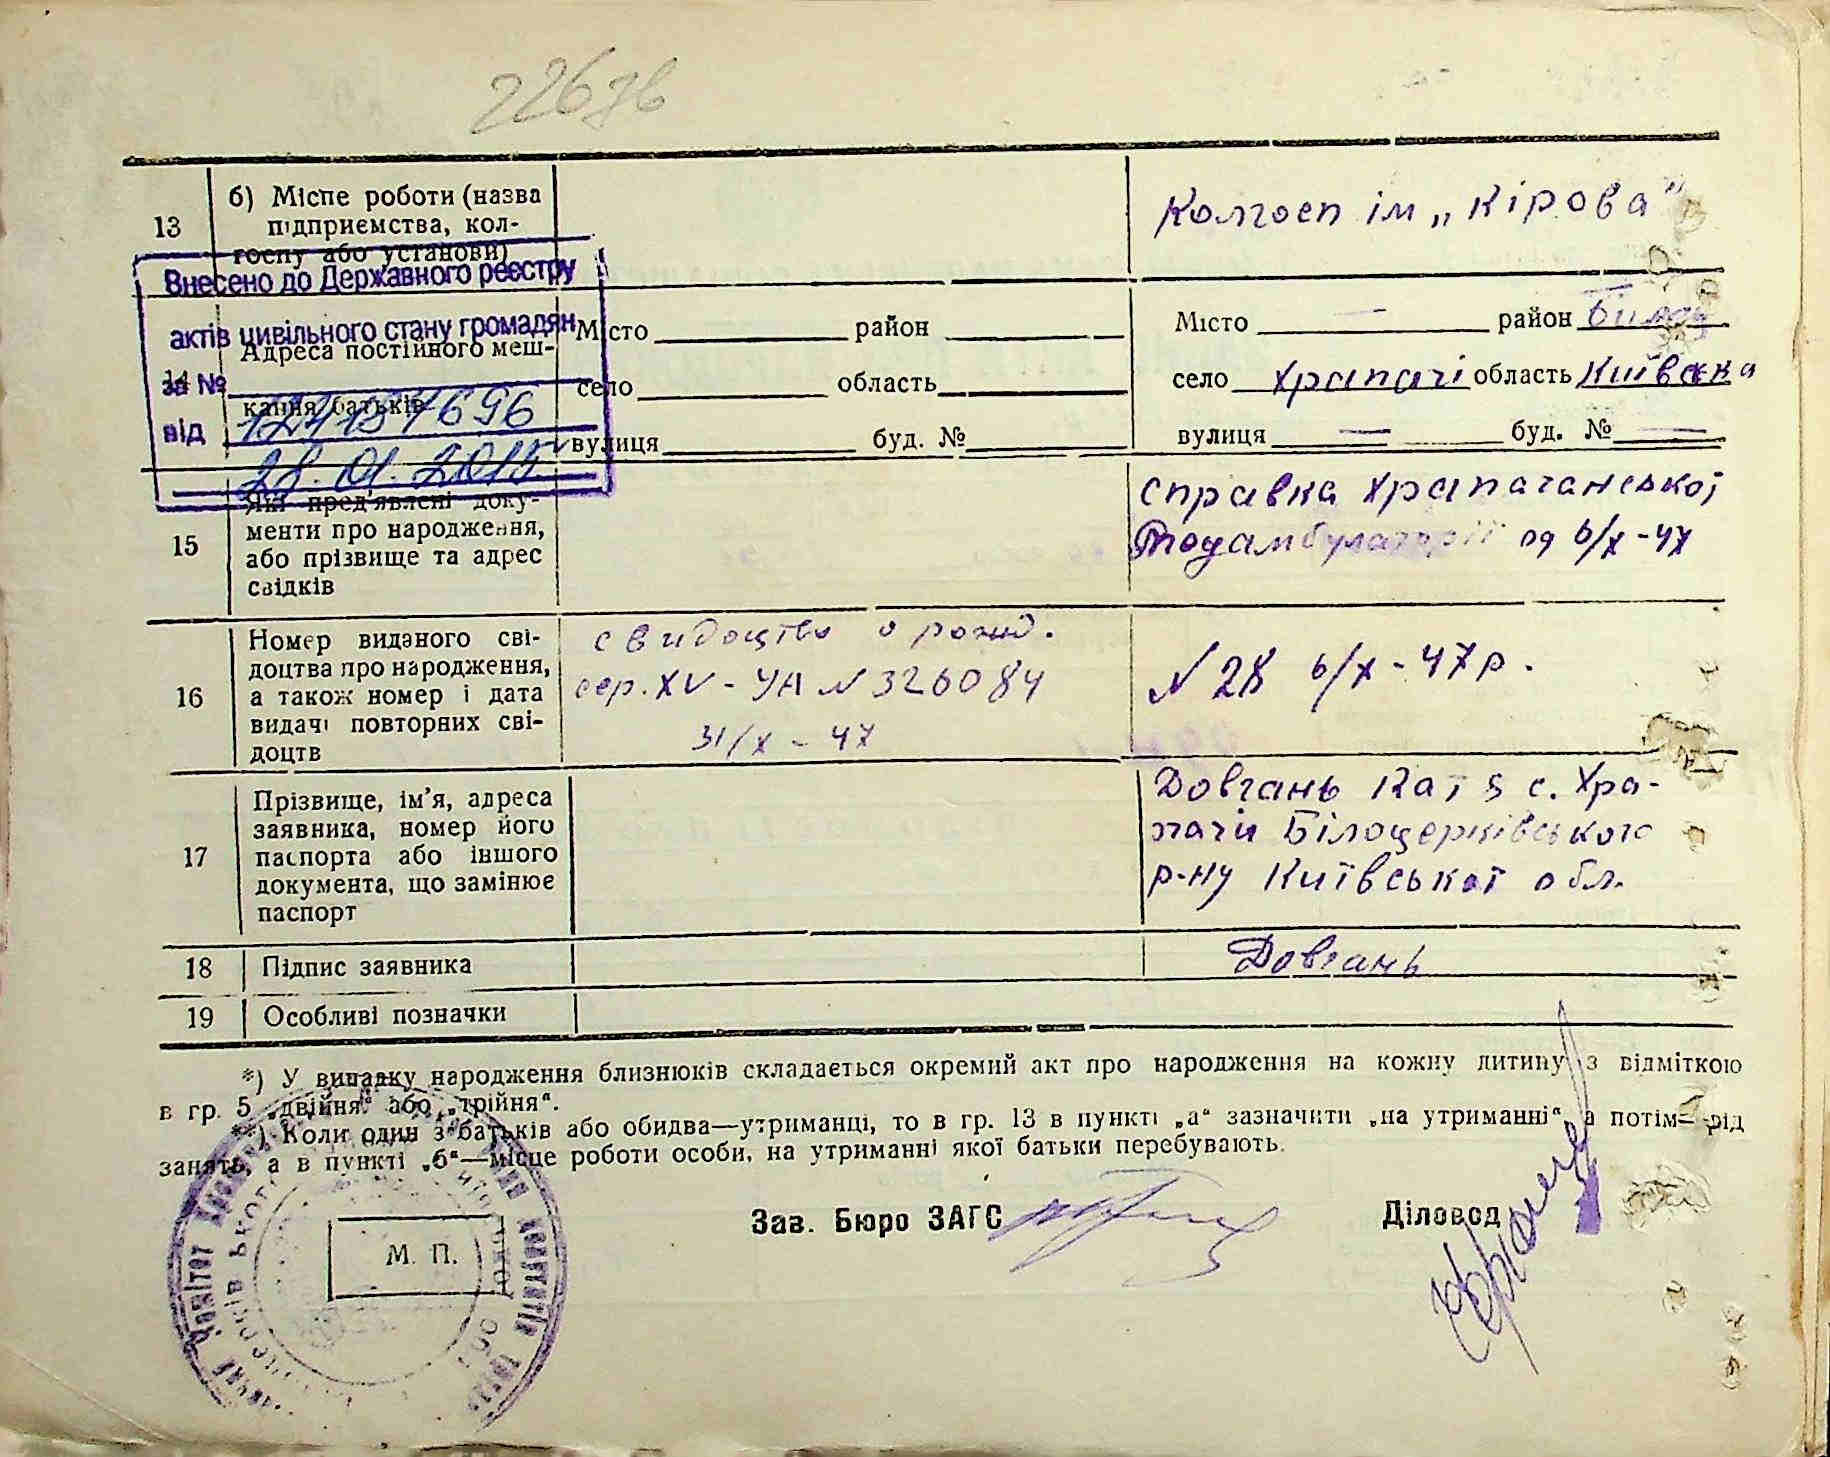 2267в
13
б) Місце роботи (назва
підприємства, кол-
госпу або установи)
Колгосп ім „Кірова"
Внесено до Державного реєстру
актів цивільного стану громадян
за №
від
28.01.2015
14
Адреса постійного меш-
кання батьків
Місто район
село область
вулиця буд. №
Місто — район Білоц
село Храпачі область Київска
вулиця — буд. № —
15
Які пред'явлені доку-
менти про народження,
або прізвище та адрес
свідків
Справка Храпачанської
од 6/X-47
16
Номер виданого сві-
доцтва про народження,
а також номер і дата
видачі повторних сві-
доцтв
свидоцтво о рожд.
сер. XV-УА N 326084
31/X - 47
N 28 6/X-47р.
17
Прізвище, ім'я, адреса
заявника, номер його
паспорта або іншого
документа, що замінює
паспорт
Довгань с. Хра-
пачи Білоцерківського
р-ну Київської обл.
18
Підпис заявника
Довгань
19
Особливі позначки
*) У випадку народження близнюків складається окремий акт про народження на кожну дитину з відміткою
в гр. 5 „двійня" або „трійня".
**) Коли один з батьків або обидва—утриманці, то в гр. 13 в пункті „а" зазначити „на утриманні", а потім— рід
занять, а в пункті „б"—місце роботи особи, на утриманні якої батьки перебувають.
Зав. Бюро ЗАГС
Діловод
М. П.